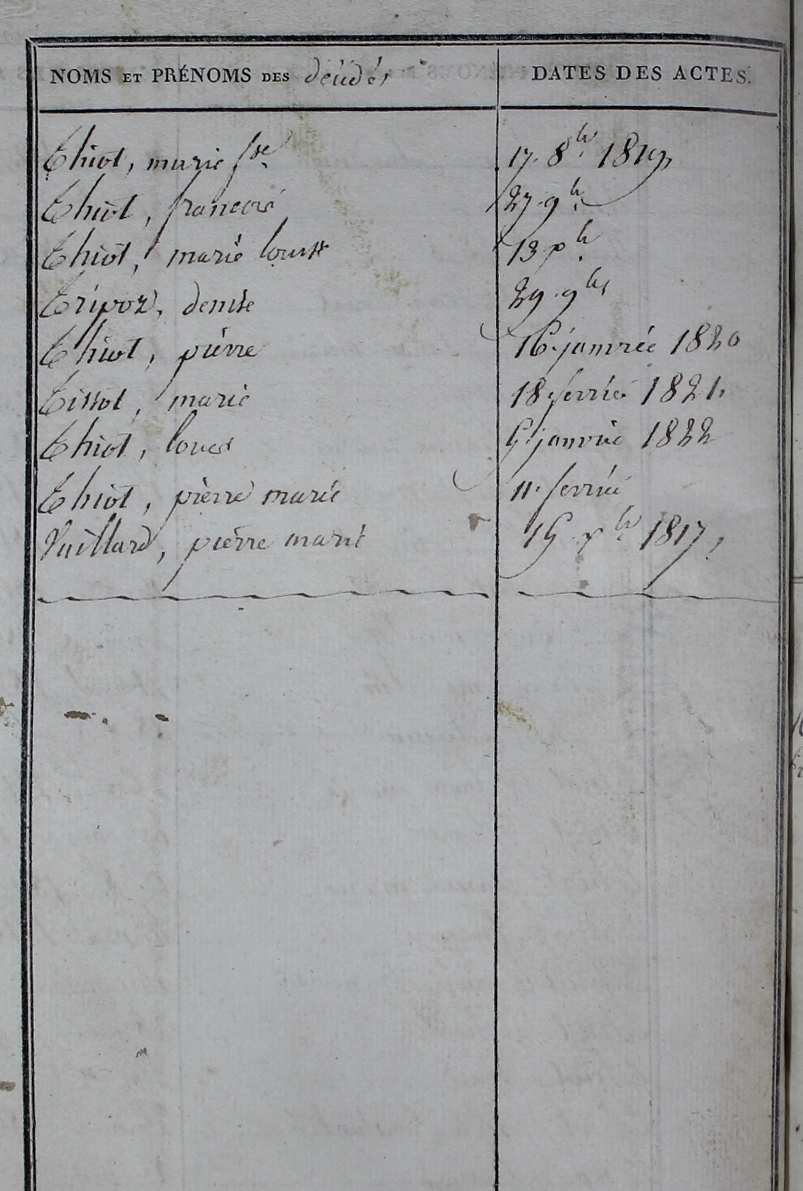 NOMS ET PRÉNOMS DES décédés DATES DES ACTES.
Thiot, marie fse 17. 8br 1819,
Thiot, francois 27. 9br
Thiot, marie louise 13 xbr
Tripoz, denise 29. 9bre
Thiot, pierre 16 janvier 1820
Tissot, marie 18 fevrier 1821,
Thiot, louis 5 janvier 1822
Thiot, pierre marie 11. fevrier
Vuillard, pierre marie 15 xbr 1817,